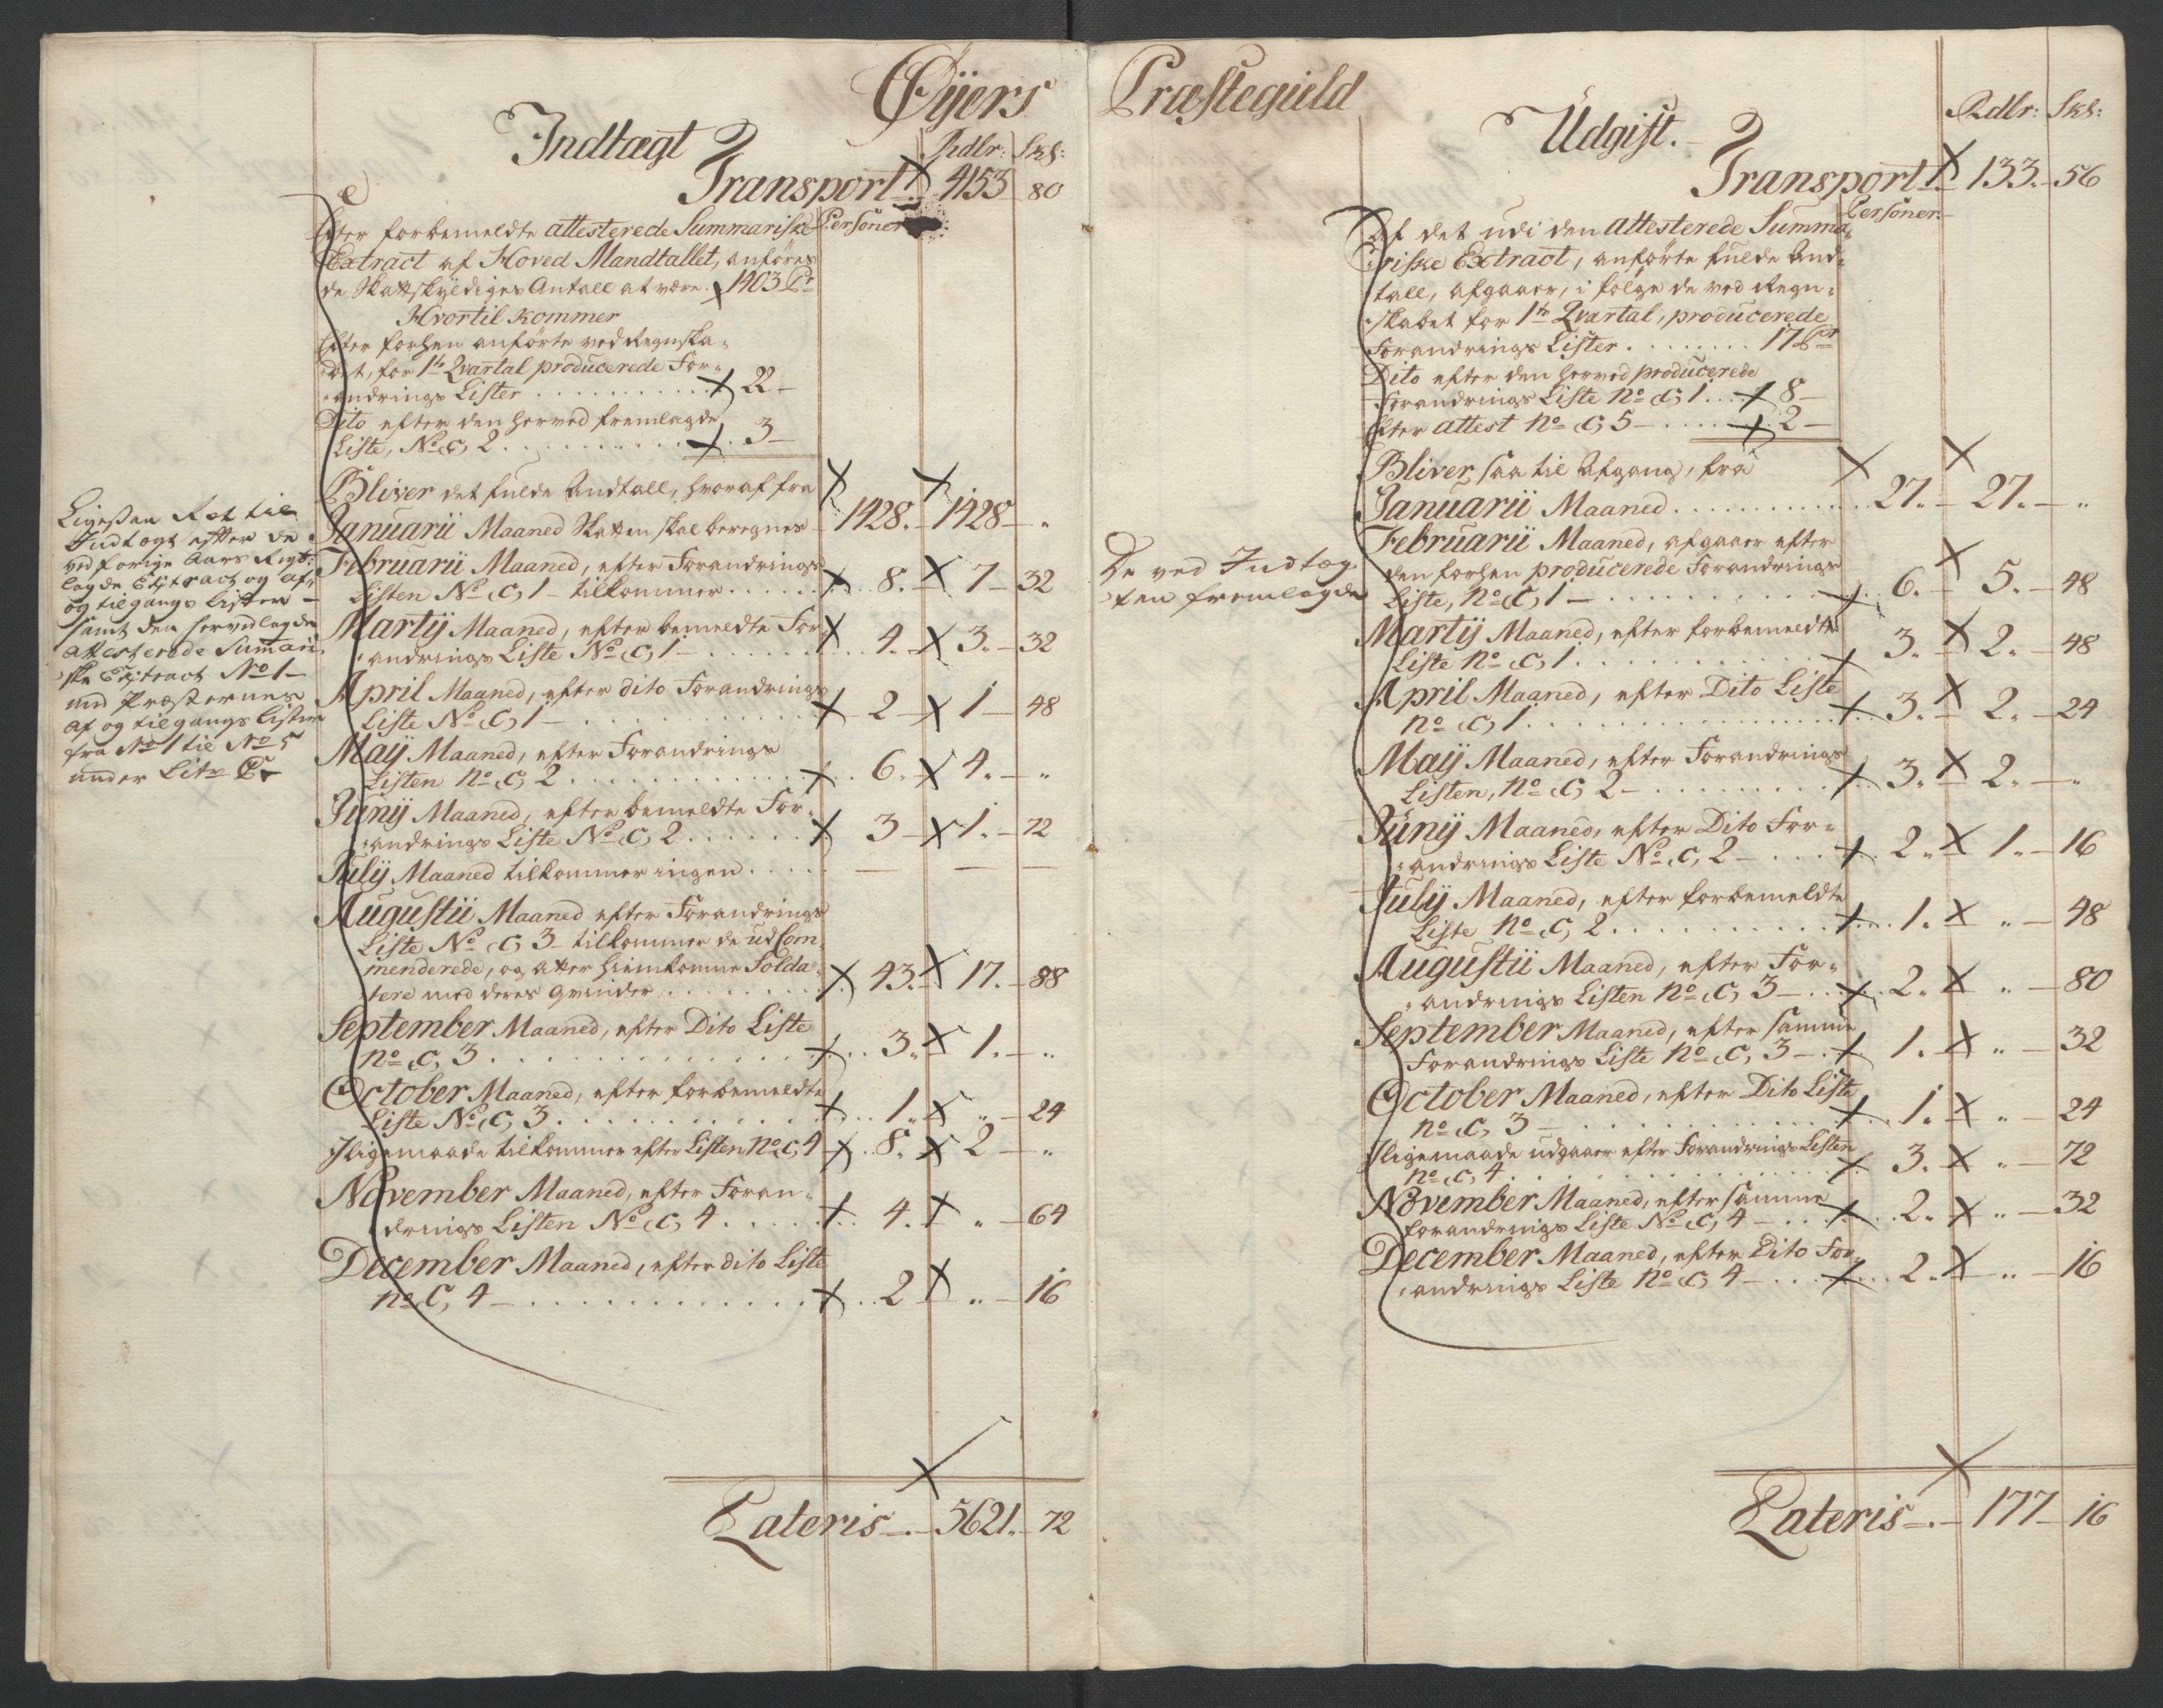 Øÿers
Indtægt
Rdlr: Skl:
Transport 4153 80
Efter forbemeldte attesterede Summariske Personer
Extract af Hoved Mandtallet, anføres
de Skattskyldiges Antall at være. 1403 Pr
Hvortil kommer
Efter forhen anførte ved Regnska-
bet, for 1te Qvartal producerede For-
andrings Lister . . . . 22 -
Dito efter den herved fremlagde
Liste, No C, 2 . . . . 3 -
Bliver det fulde Andtall, hvoraf fra
Januarii Maaned Skatten skal beregnes - 1428. - 1428 - "
Februarii Maaned, efter Forandrings
Listen No C, 1 - tilkommer . . . . 8. 7 - 32
Martij Maaned, efter bemeldte For-
andrings Liste No C, 1 - . . . . 4. 3. - 32
April Maaned, efter dito Forandrings
Liste No C, 1 - . . . . 2 - 1 - 48
Maij Maaned, efter Forandrings
Listen No C, 2 . . . . 6. 4. - "
Junij Maaned, efter bemeldte For-
andrings Liste No C, 2 . . . . 3 - 1. - 72
Julij Maaned tilkommer ingen . . . . - - -
Augustii Maaned efter Forandrings
Liste No C, 3 - tilkommer de ud Com-
menderede, og atter hiemkomne Solda-
tere med deres qvinder . . . . 43. 17. - 88
September Maaned, efter Dito Liste
No C, 3 . . . . 3. 1. - "
October Maaned, efter forbemeldte
Liste No C, 3 . . . . 1. " - 24
Iligemaade tilkommer efter Listen No C, 4 . 8. 2 - "
November Maaned, efter Foran-
drings Listen No C, 4 . . . . 4. " - 64
December Maaned, efter dito Liste
No C, 4 - . . . . 2 - " - 16
Lateris - . - 5621. - 72
Ligesaa Ret til
Indtægt efter de
ved forige Aars Regs:
lagde Extract og af-
og tilgangs Lister -
samt den hervedlagde
attesterede Summari-
ske Extract No 1 -
med Præsternes
af og tilgangs Lister
fra No 1 til No 5
under Litr C,
Præstegield
Udgift. -
Rdlr: Skl:
Transport 133. - 56
Personer -
Af det udi den attesterede Summa-
riske Extract, anførte fulde And-
tall, afgaaer, i følge de ved Regn-
skabet for 1te Qvartal, producerede
Forandrings Lister . . . . 17 Pr
Dito efter den herved producerede
Forandrings Liste No C, 1 . . . . 8 -
Efter attest No C, 5 - . . . . 2 -
Bliver, saa til Afgang, fra
Januarii Maaned . . . . 27. - 27. - "
Februarii Maaned, afgaaer efter
den forhen producerede Forandrings
Liste, No C, 1 - . . . . 6. - 5. - 48
Martij Maaned, efter forbemeldte
Liste No C, 1 . . . . 3. 2. - 48
April Maaned, efter Dito Liste
No C, 1 . . . . 3. - 2. - 24
Maij Maaned, efter Forandrings
Listen, No C, 2 - . . . . 3. 2. - "
Junij Maaned, efter Dito For-
andrings Liste No C, 2 - . . . . 2. 1. - 16
Julij Maaned, efter forbemeldte
Liste No C, 2 . . . . 1. " - 48
Augustii Maaned, efter For-
andrings Listen No C, 3 - . . . . 2. " - 80
September Maaned, efter samme
Forandrings Liste No C, 3 - . 1. " - 32
October Maaned, efter Dito Liste
No C, 3 - . . . . 1. " - 24
Iligemaade udgaaer efter Forandrings Listen
No C, 4 . . . . 3. " - 72
November Maaned, efter samme
forandrings Liste No C, 4 - . . . . 2. " - 32
December Maaned, efter Dito For-
andrings Liste No C, 4 - . . . . 2. " - 16
Lateris - . - 177 - 16
De ved Indtæg-
ten fremlagde